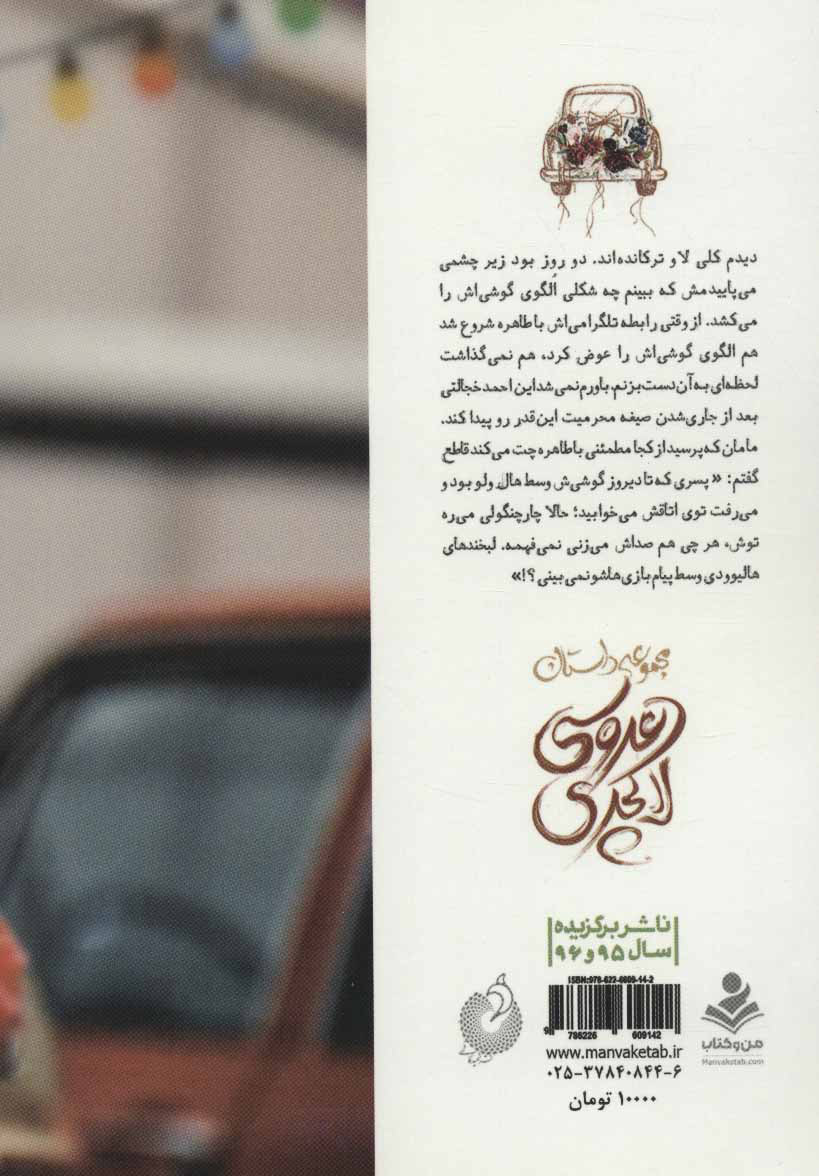 دیدم کلی لاو ترکانده‌اند. دو روز بود زیر چشمی
می‌پاییدمش که ببینم چه شکلی اُلگوی گوشی‌اش را
می‌کشد. از وقتی رابطه تلگرامی‌اش با طاهره شروع شد
هم الگوی گوشی‌اش را عوض کرد، هم نمی‌گذاشت
لحظه‌ای به آن دست بزنم. باورم نمی‌شد این احمد خجالتی
بعد از جاری شدن صیغه محرمیت این‌قدر رو پیدا کند.
مامان که پرسید از کجا مطمئنی با طاهره چت می‌کند قاطع
گفتم: «پسری که تا دیروز گوشی‌ش وسط هال ولو بود و
می‌رفت توی اتاقش می‌خوابید؛ حالا چارچنگولی می‌ره
توش، هر چی هم صداش می‌زنی نمی‌فهمه. لبخندهای
هالیوودی وسط پیام بازی‌هاشو نمی‌بینی؟!»
مجموعه داستان
عروسی
لاکچری
ناشر برگزیده
سال ۹۵ و ۹۶
ISBN:978-622-6609-14-2
9 786226 609142
www.manvaketab.ir
۰۲۵-۳۷۸۴۰۸۴۴-۶
۱۰۰۰۰ تومان
من و کتاب
Manvaketab.com